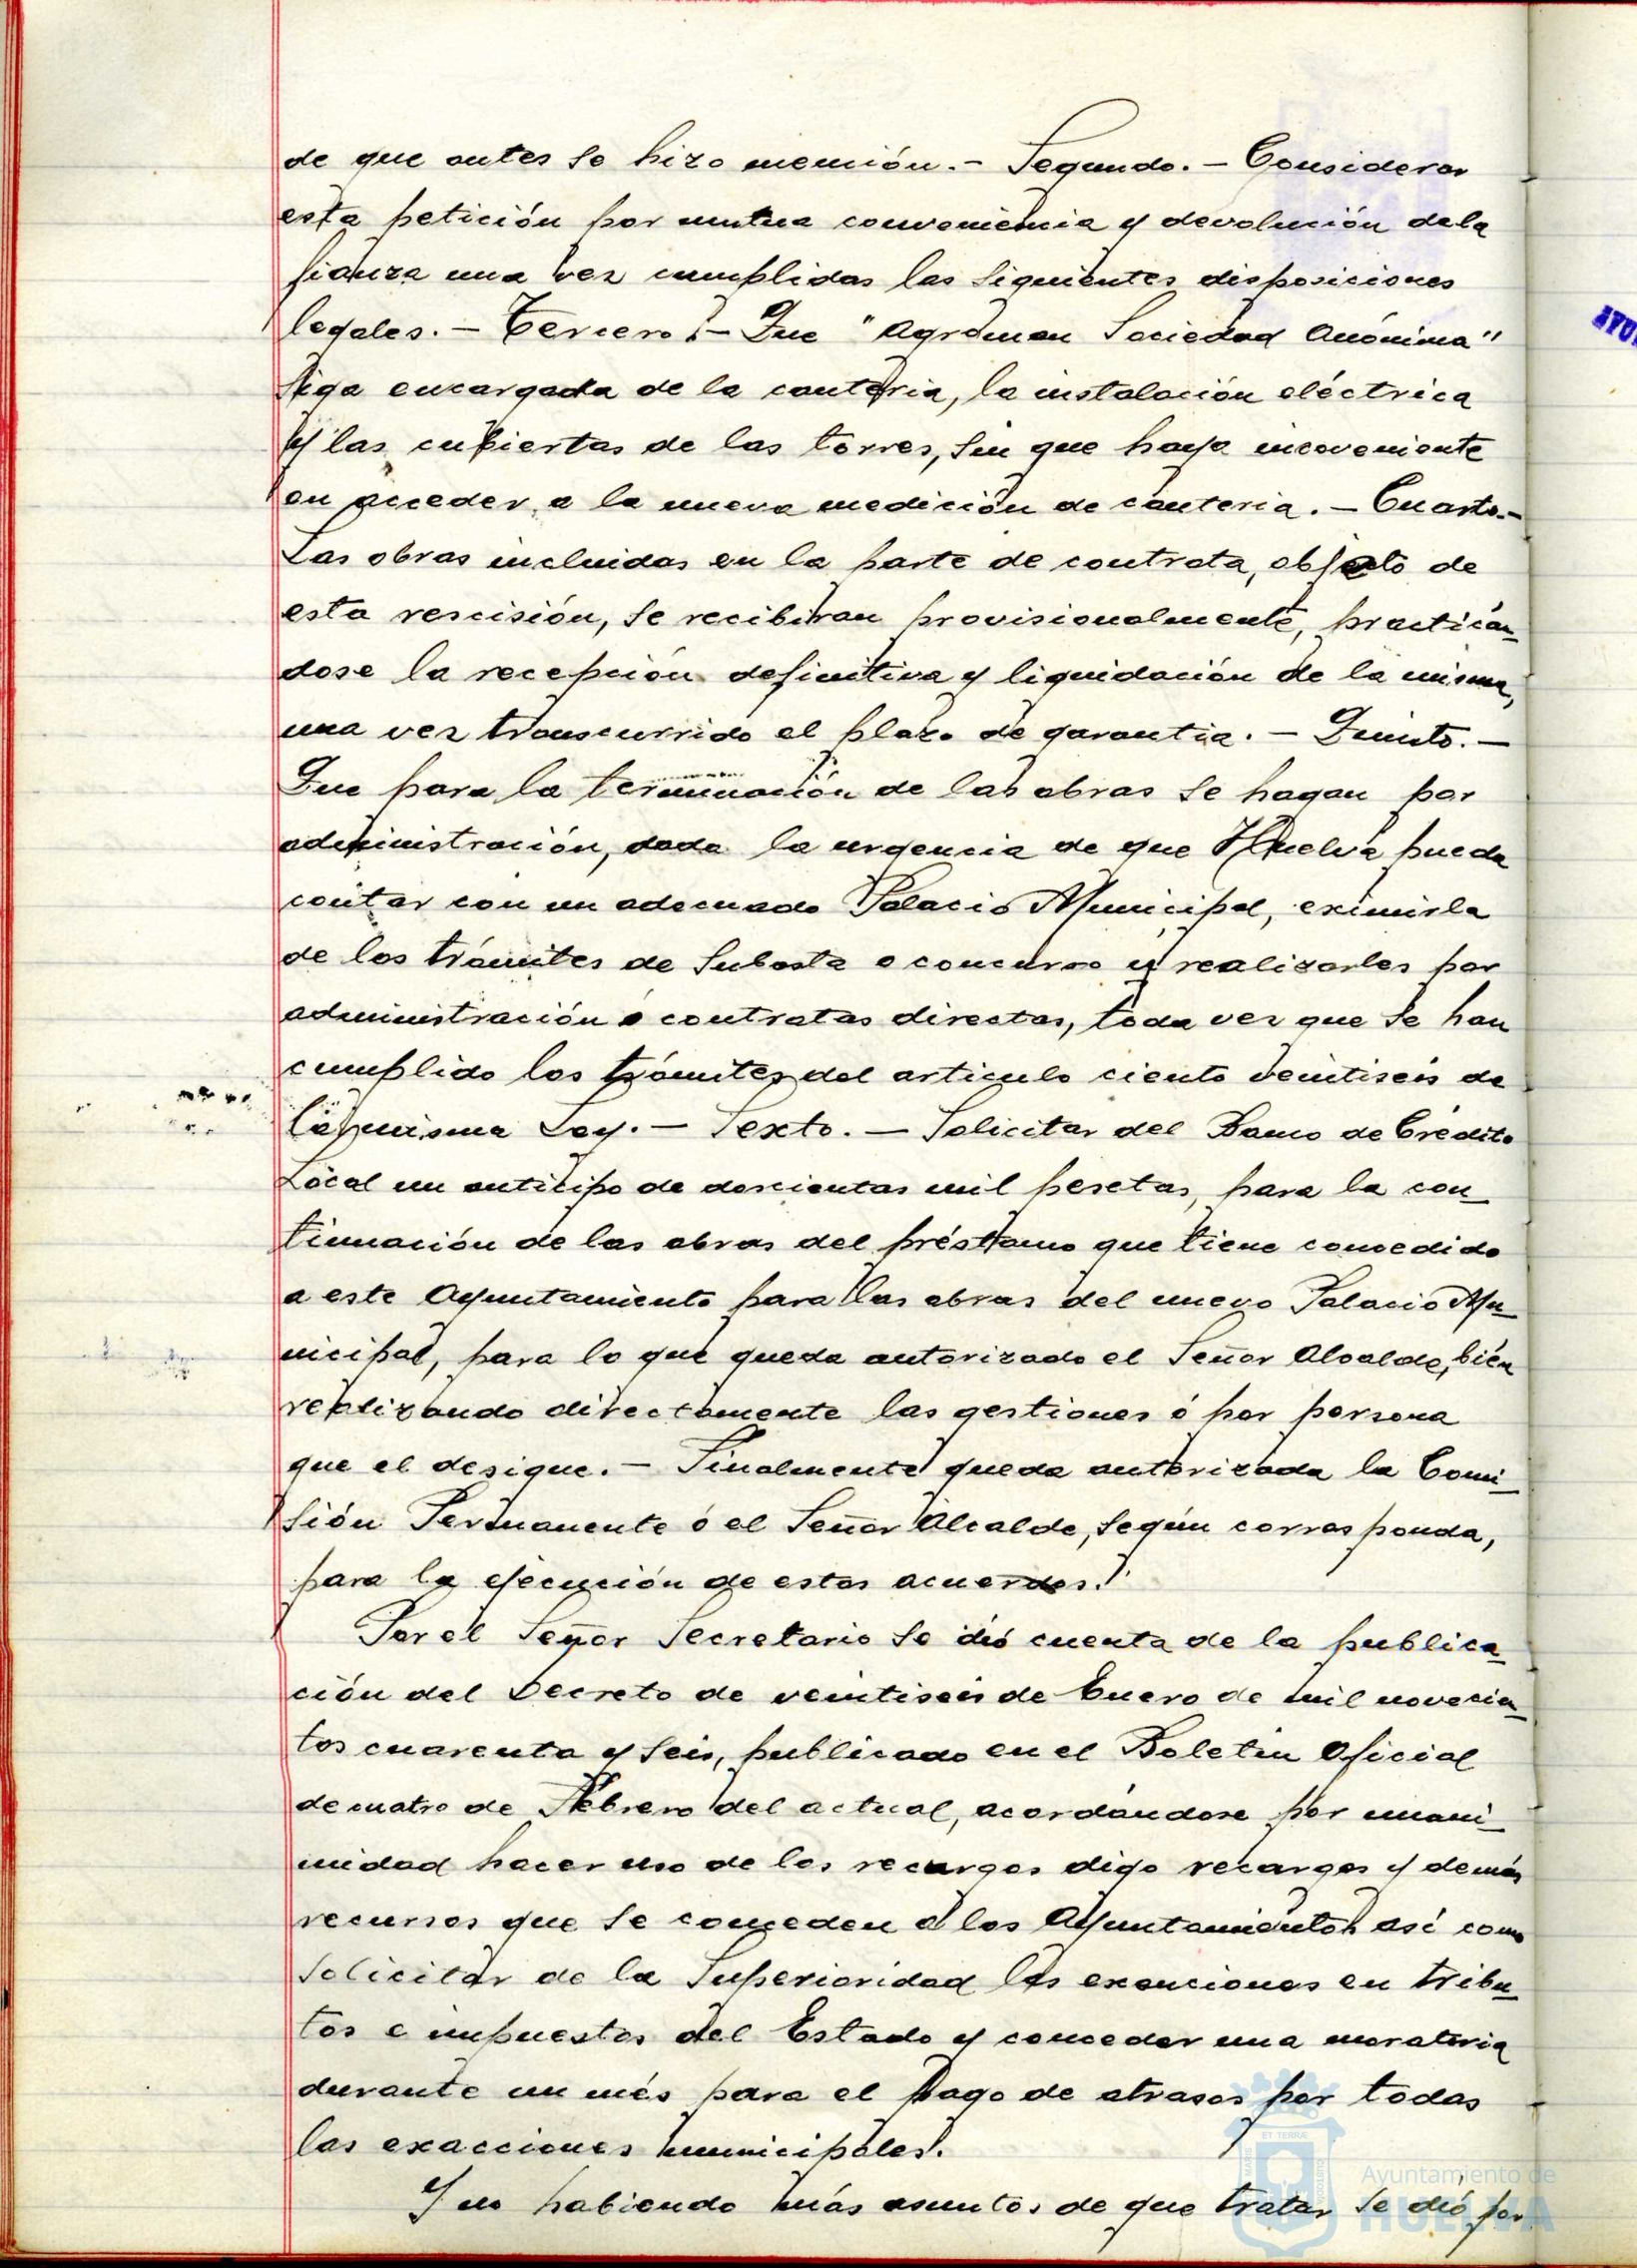 de que antes se hizo mención.- Segundo.- Considerar
esta petición por mutua conveniencia y devolución de la
fianza una vez cumplidas las siguientes disposiciones
legales.- Tercero.- Que "Agroman Sociedad Anónima"
siga encargada de la cantería, la instalación eléctrica
y las cubiertas de las torres, sin que haya inconveniente
en acceder a la nueva medición de cantería.- Cuarto.-
Las obras incluidas en la parte de contrata, objeto de
esta rescisión, se recibiran provisionalmente, practicán
dose la recepción definitiva y liquidación de la misma,
una vez transcurrido el plazo de garantia.- Quinto.-
Que para la terminación de las obras se hagan por
administración, dada la urgencia de que Huelva pueda
contar con un adecuado Palacio Municipal, eximirla
de los trámites de subasta o concurso y realizarles por
administración o contratas directas, toda vez que se han
cumplido los trámites del articulo ciento veintiseis de
la misma Ley.- Sexto.- Solicitar del Banco de Crédito
Local un anticipo de doscientas mil pesetas, para la con
tinuación de las obras del préstamo que tiene concedido
a este Ayuntamiento para las obras del nuevo Palacio Mu
nicipal, para lo que queda autorizado el Señor Alcalde, bién
realizando directamente las gestiones ó por persona
que el designe.- Finalmente queda autorizada la Comi
sión Permanente ó el Señor Alcalde, según corresponda,
para la ejecución de estos acuerdos.
Por el Señor Secretario se dió cuenta de la publica
ción del Decreto de veintiseis de Enero de mil novecien
tos cuarenta y seis, publicado en el Boletin Oficial
de cuatro de Febrero del actual, acordándose por unani
midad hacer uso de los recargos digo recargos y demás
recursos que se conceden a los Ayuntamientos así como
solicitar de la Superioridad las exenciones en tribu
tos e impuestos del Estado y conceder una moratoria
durante un més para el pago de atrasos por todas
las exacciones municipales.
Y no habiendo más asuntos de que tratar se dió por
Ayuntamiento de
HUELVA